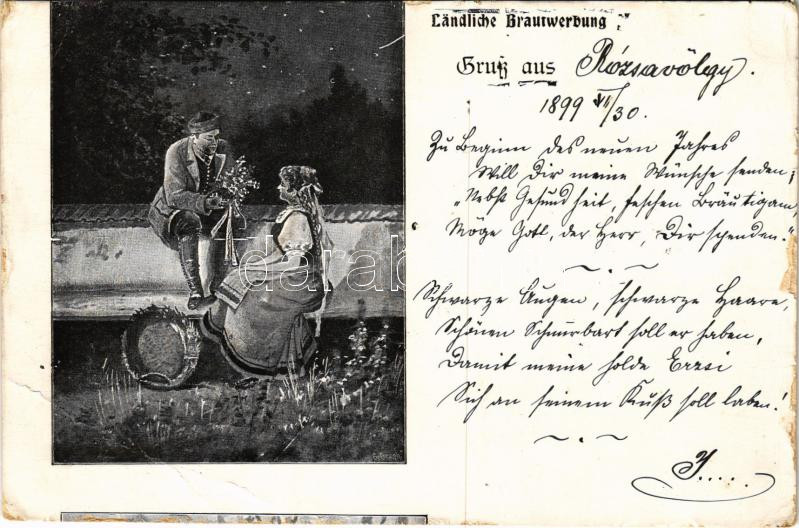 Ländliche Brautwerbung
Gruß aus Rózsavölgy.
1899 VI/30.
Zu Beginn des neuen Jahres
Will Dir meine Wünsche senden;
"Nebst Gesundheit, feschen Bräutigam,
Möge Gott, der Herr, Dir spenden."
Schwarze Augen, schwarze Haare,
Schönen Schnurrbart soll er haben,
Damit meine holde Erzsi
Sich an seinem Kuß soll laben!
J.....
darab